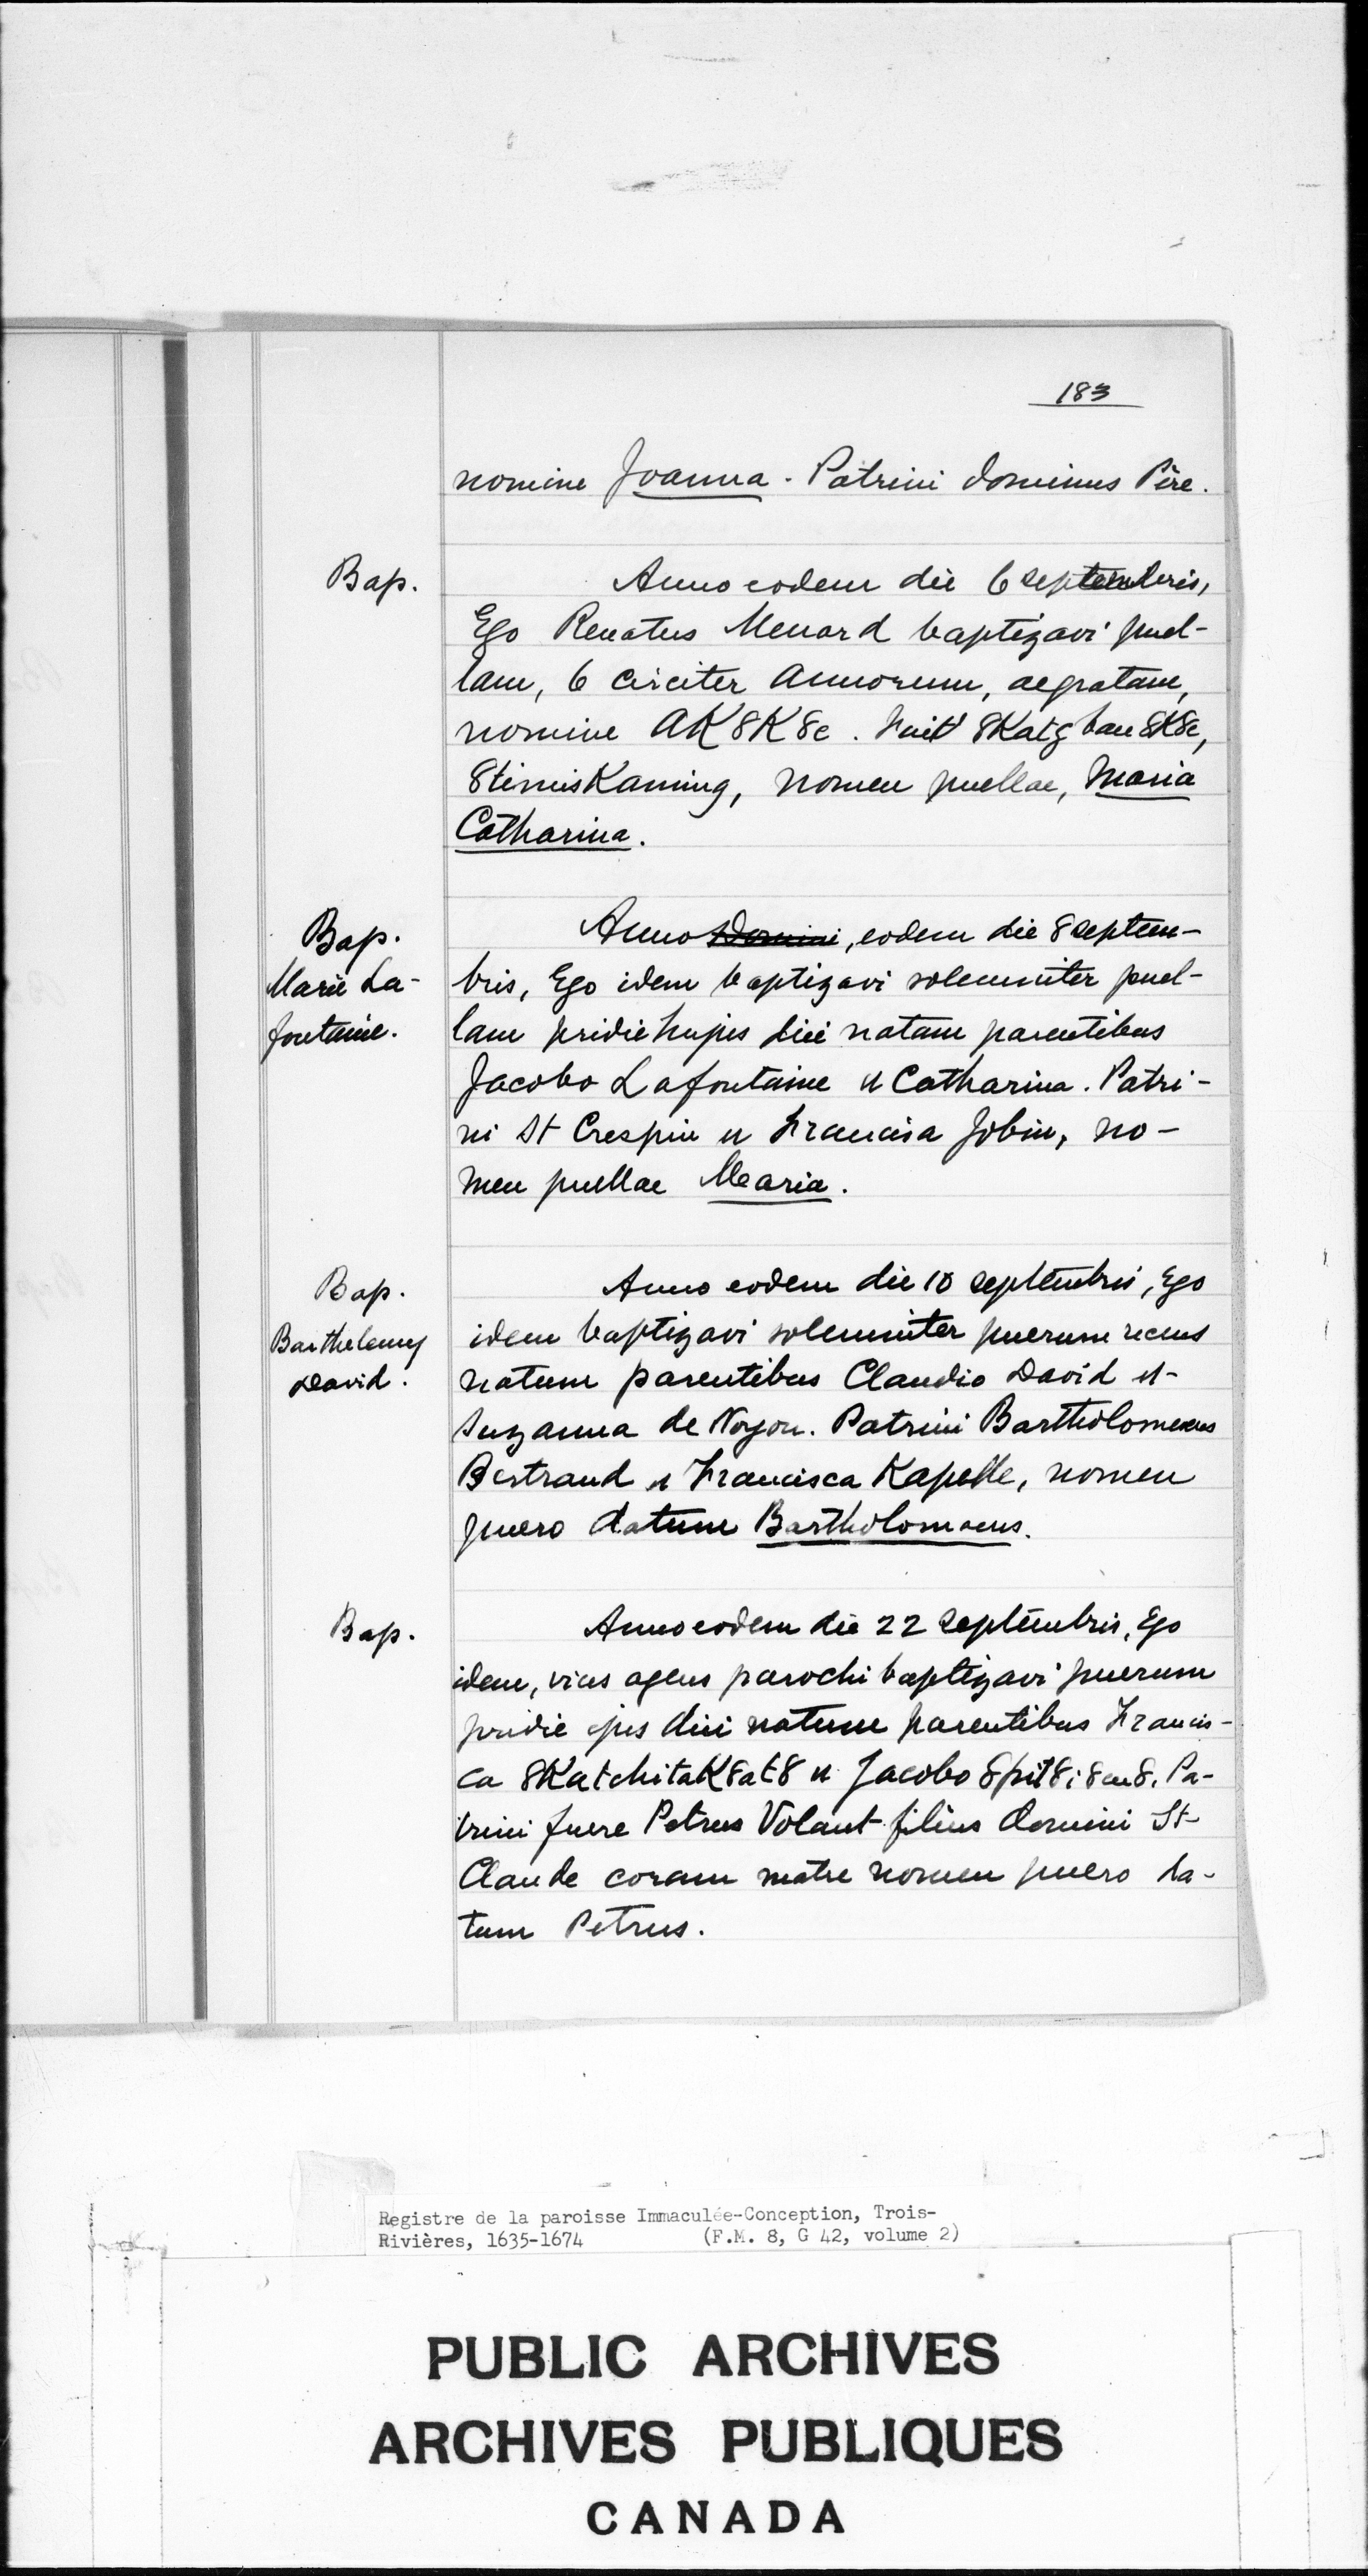 183
nomine Joanna. Patrini dominus Père.
Bap.
Anno eodem die 6 septembris,
Ego Renatus Menard baptizavi puel-
lam, 6 circiter annorum, aegrotam,
nomine AK8K8e. fuit 8Katg8an8K8e,
8timisKaming, nomen puellae, Maria
Catharina.
Bap.
Marie La-
fontaine.
Anno Domini, eodem die 8 septem-
bris, Ego idem baptizavi solemniter puel-
lam pridie hujus diei natam parentibus
Jacobo Lafontaine et Catharina. Patri-
ni St Crespin et Francisa Jobin, no-
men puellae Maria.
Bap.
Barthelemy
David.
Anno eodem die 10 septembris, Ego
idem baptizavi solemniter puerum recens
natum parentibus Claudio David et
Suzanna de Noyon. Patrini Bartholomeus
Bertrand et Francisca Kapelle, nomen
puero datum Bartholomaeus.
Bap.
Anno eodem die 22 septembris, Ego
idem, vices agens parochi baptizavi puerum
pridie ejus diei natum parentibus Francis-
ca 8KatchitaK8at8 et Jacobo
Pa-
trini fuere Petrus Volant filius domini St
Claude coram matre nomen puero da-
tum Petrus.
Registre de la paroisse Immaculée-Conception, Trois-
Rivières, 1635-1674 (F.M. 8, G 42, volume 2)
PUBLIC ARCHIVES
ARCHIVES PUBLIQUES
CANADA